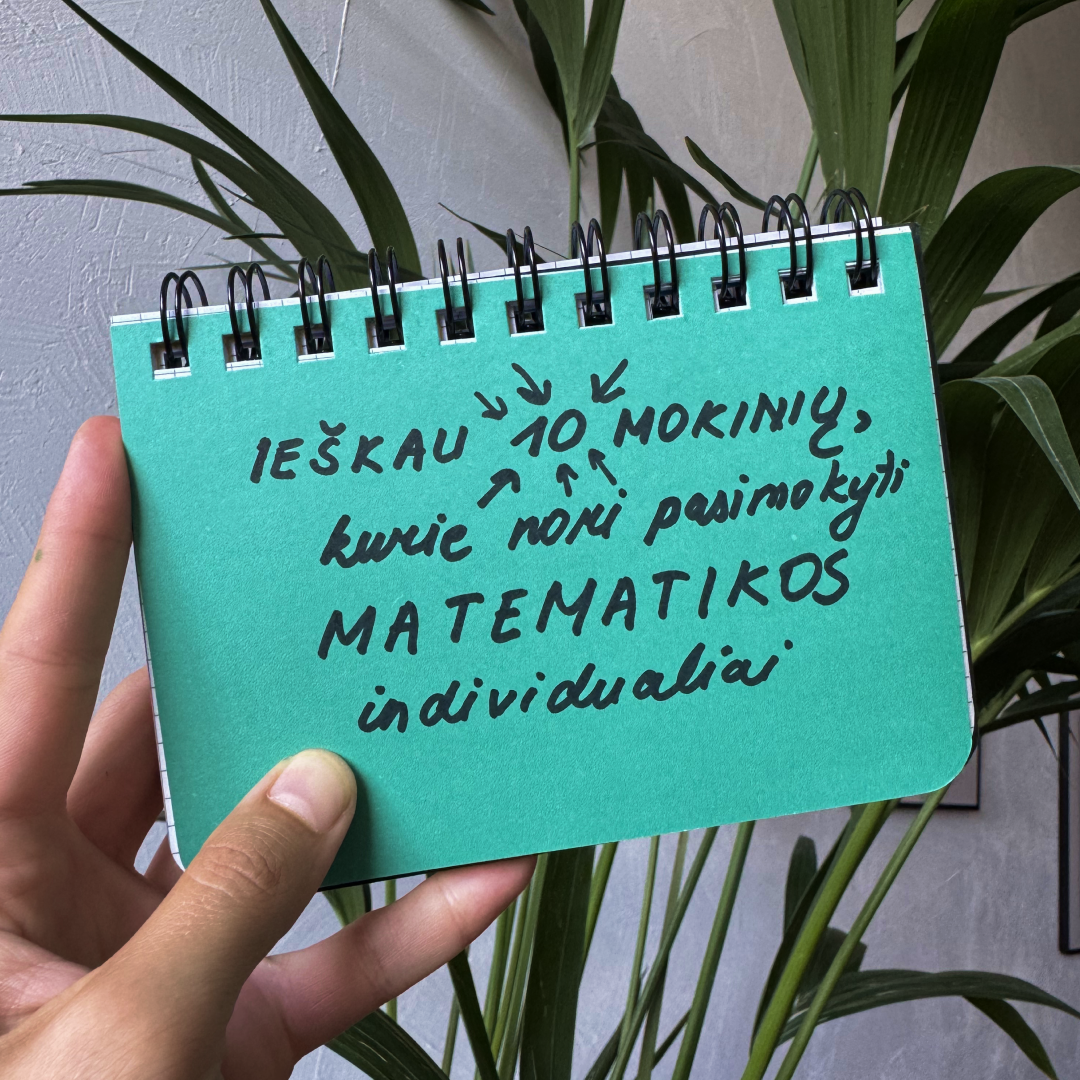 IEŠKAU 10 MOKINIŲ,
kurie nori pasimokyti
MATEMATIKOS
individualiai